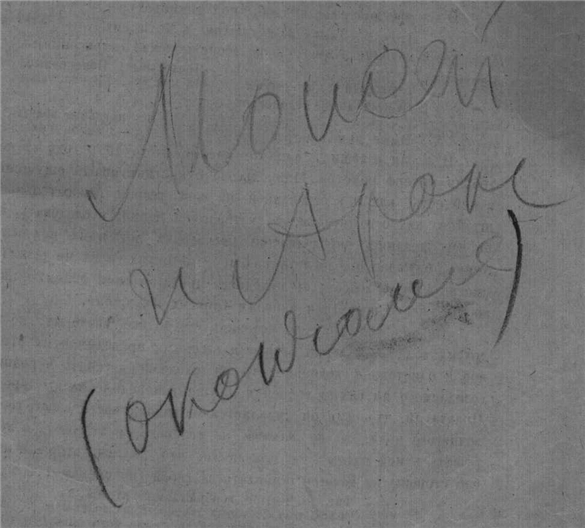 Моисей
и Арон
(окончание)